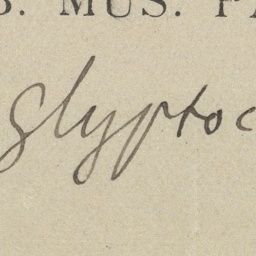 B. MUS. PA
glyptoc